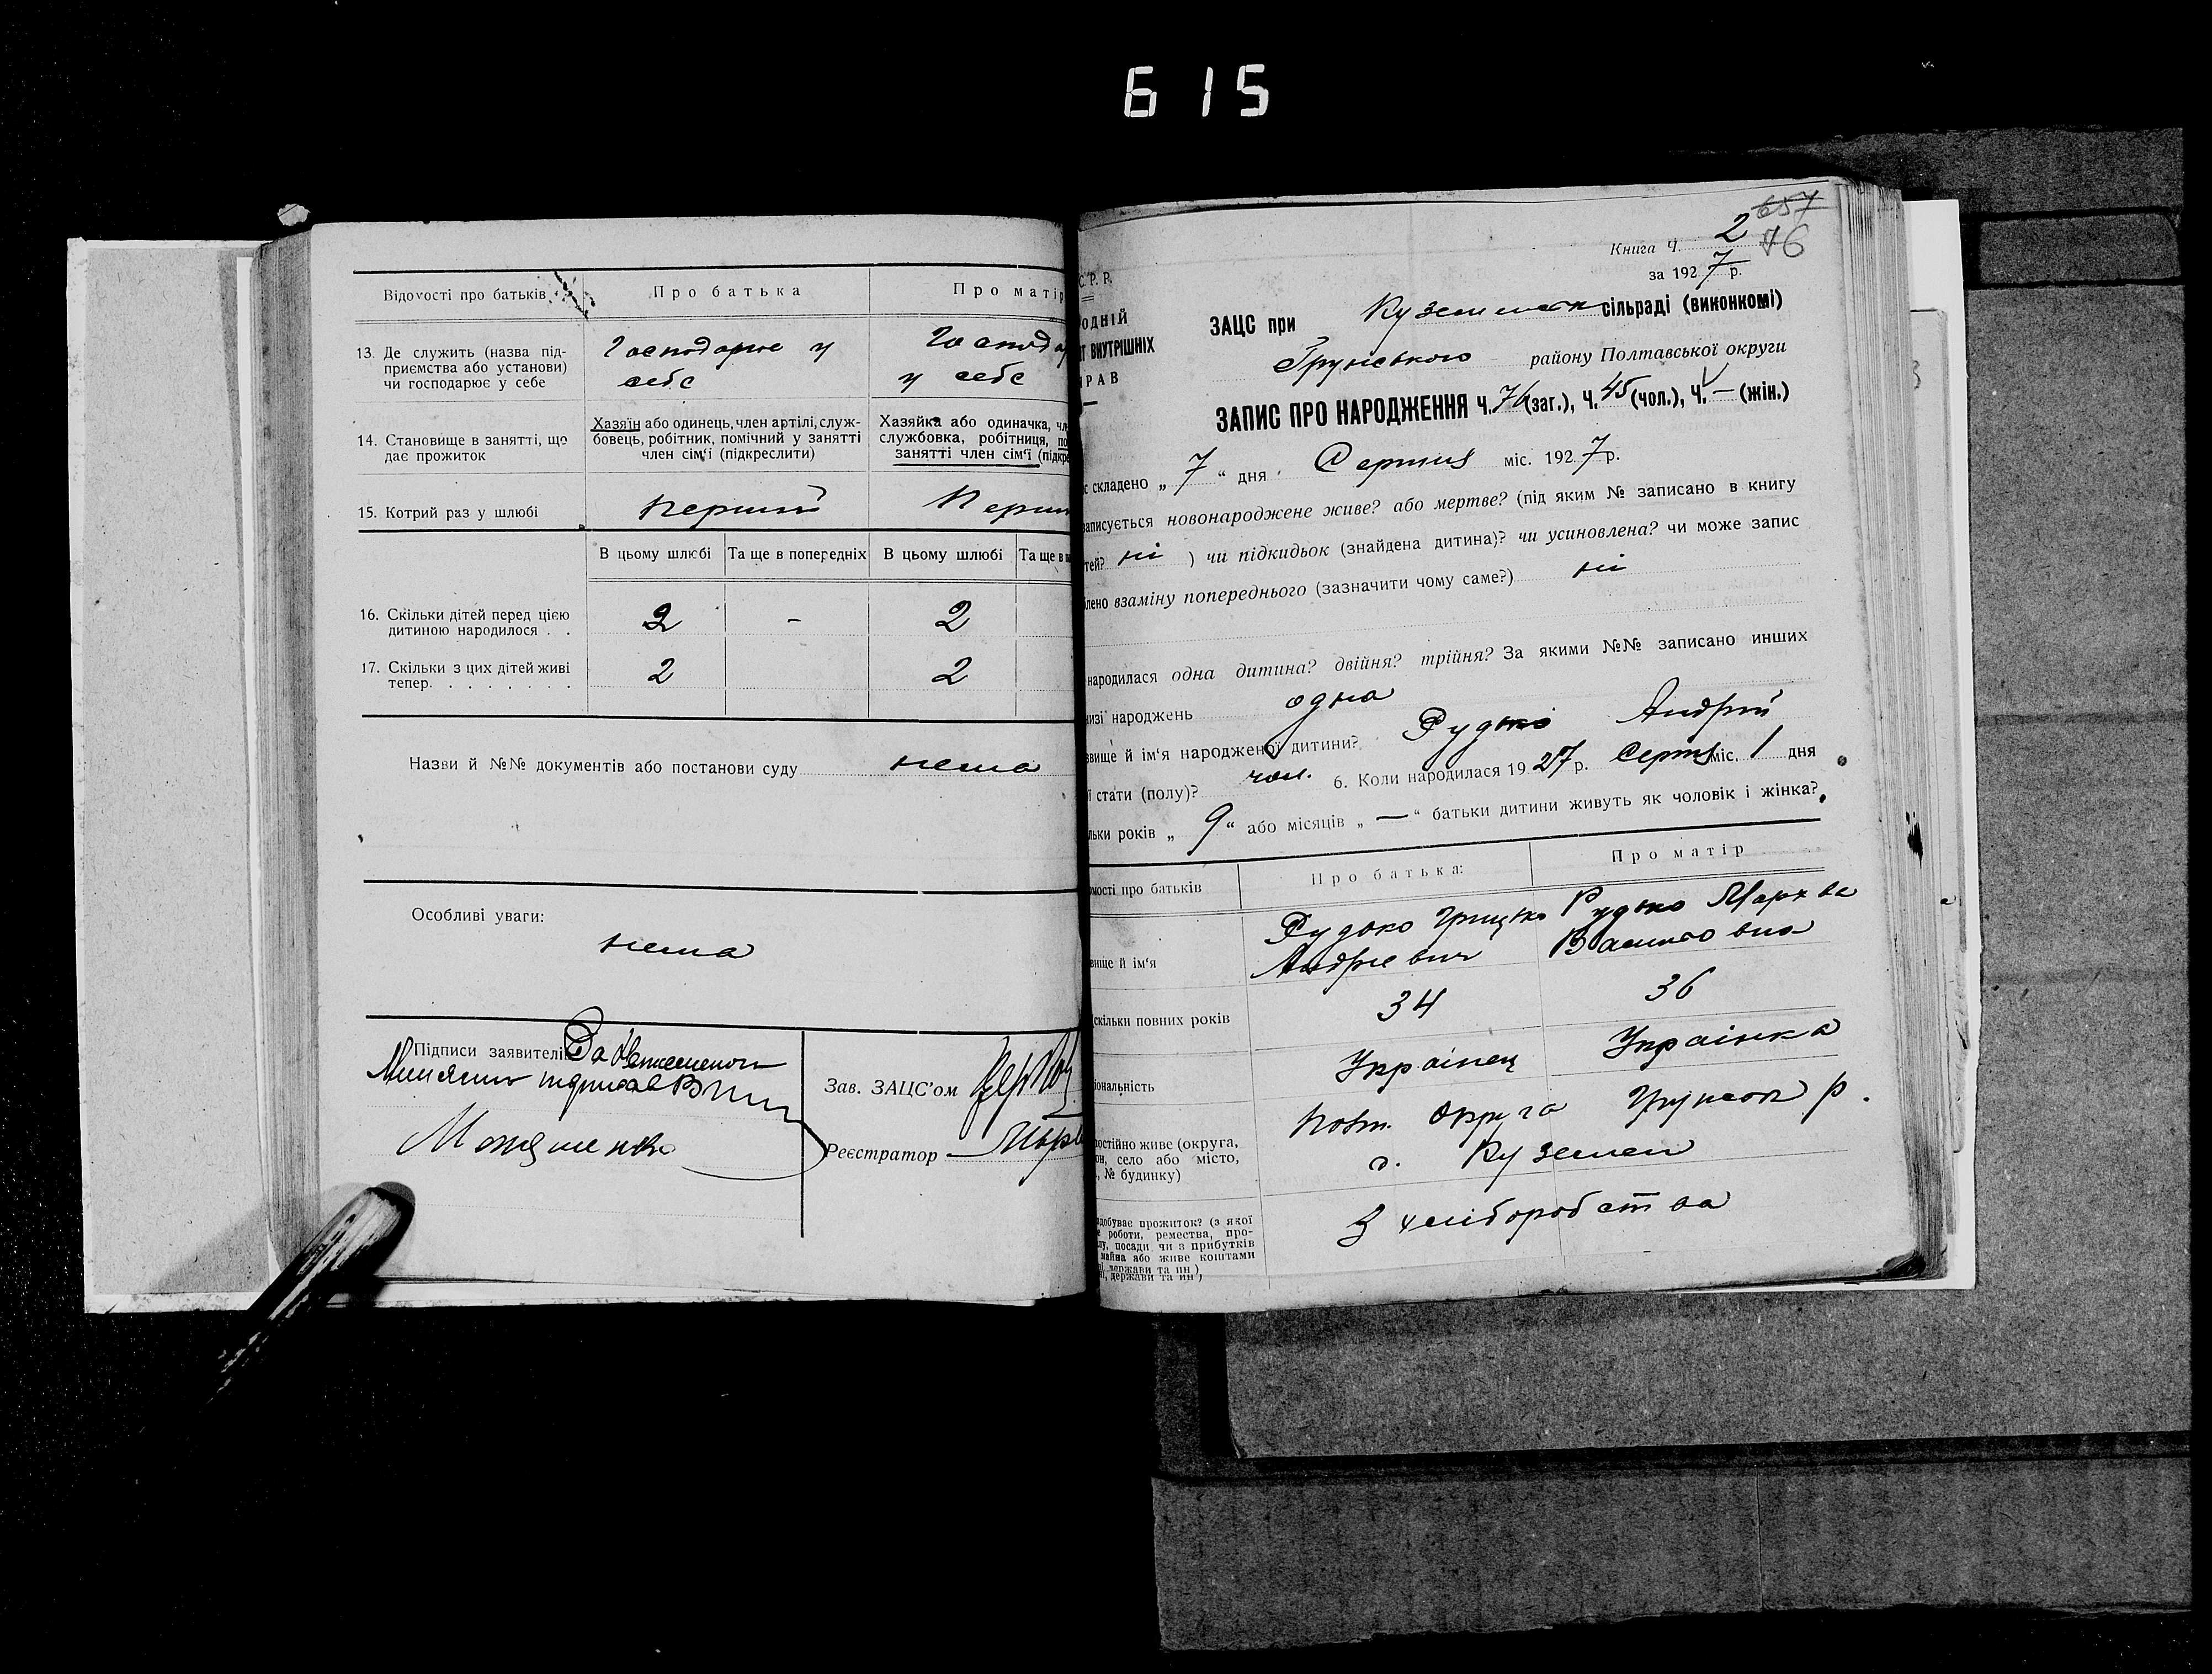 615
Відомості про батьків
Про батька
Про матір
13. Де служить (назва під-
приємства або установи)
чи господарює у себе
Господарює у
себе
Господар
у себе
14. Становище в занятті, що
дає прожиток
Хазяїн або одинець, член артілі, служ-
бовець, робітник, помічний у занятті
член сім'ї (підкреслити)
Хазяйка або одиначка, чл
службовка, робітниця, по
занятті член сім'ї (підкре
15. Котрий раз у шлюбі
перший
Перши
В цьому шлюбі
Та ще в попередніх
В цьому шлюбі
Та ще в п
16. Скільки дітей перед цією
дитиною народилося . .
2 - 2
17. Скільки з цих дітей живі
тепер. . . . . . . .
2 2
Назви й №№ документів або постанови суду нема
Особливі уваги:
нема
Підписи заявителів
За
підписав
Зав. ЗАЦС'ом
Реєстратор
657
76
Книга Ч. 2
за 1927 р.
С. Р. Р.
ОДНІЙ
Т ВНУТРІШНІХ
РАВ
ЗАЦС при Куземинск сільраді (виконкомі)
Грунського району Полтавської округи
ЗАПИС ПРО НАРОДЖЕННЯ Ч. 76 (заг.), Ч. 45 (чол.), Ч. — (жін.)
с складено „ 7 “ дня Серпня міс. 1927 р.
записується новонароджене живе? або мертве? (під яким № записано в книгу
тей? ні ) чи підкидьок (знайдена дитина)? чи усиновлена? чи може запис
лено взаміну попереднього (зазначити чому саме?) ні
народилася одна дитина? двійня? трійня? За якими №№ записано инших
низі народжень одна
звище й ім'я народженої дитини? Рудько Андрій
ї стати (полу)? чол. 6. Коли народилася 1927 р. Серпня міс. 1 дня
льки років „ 9 “ або місяців „ — “ батьки дитини живуть як чоловік і жінка?
омості про батьків
Про батька:
Про матір
вище й ім'я
Рудько Грицько
Андрієвич
Рудько Мархва
Василовна
скільки повних років
34
36
іональність
Українец
Українка
постійно живе (округа,
он, село або місто,
, № будинку)
Полт. округа Грунськ р.
с. Куземен
здобуває прожиток? (з якої
е роботи, ремества, про-
лу, посади чи з прибутків
майна або живе коштами
ні, держави та ин)
З хліборобства